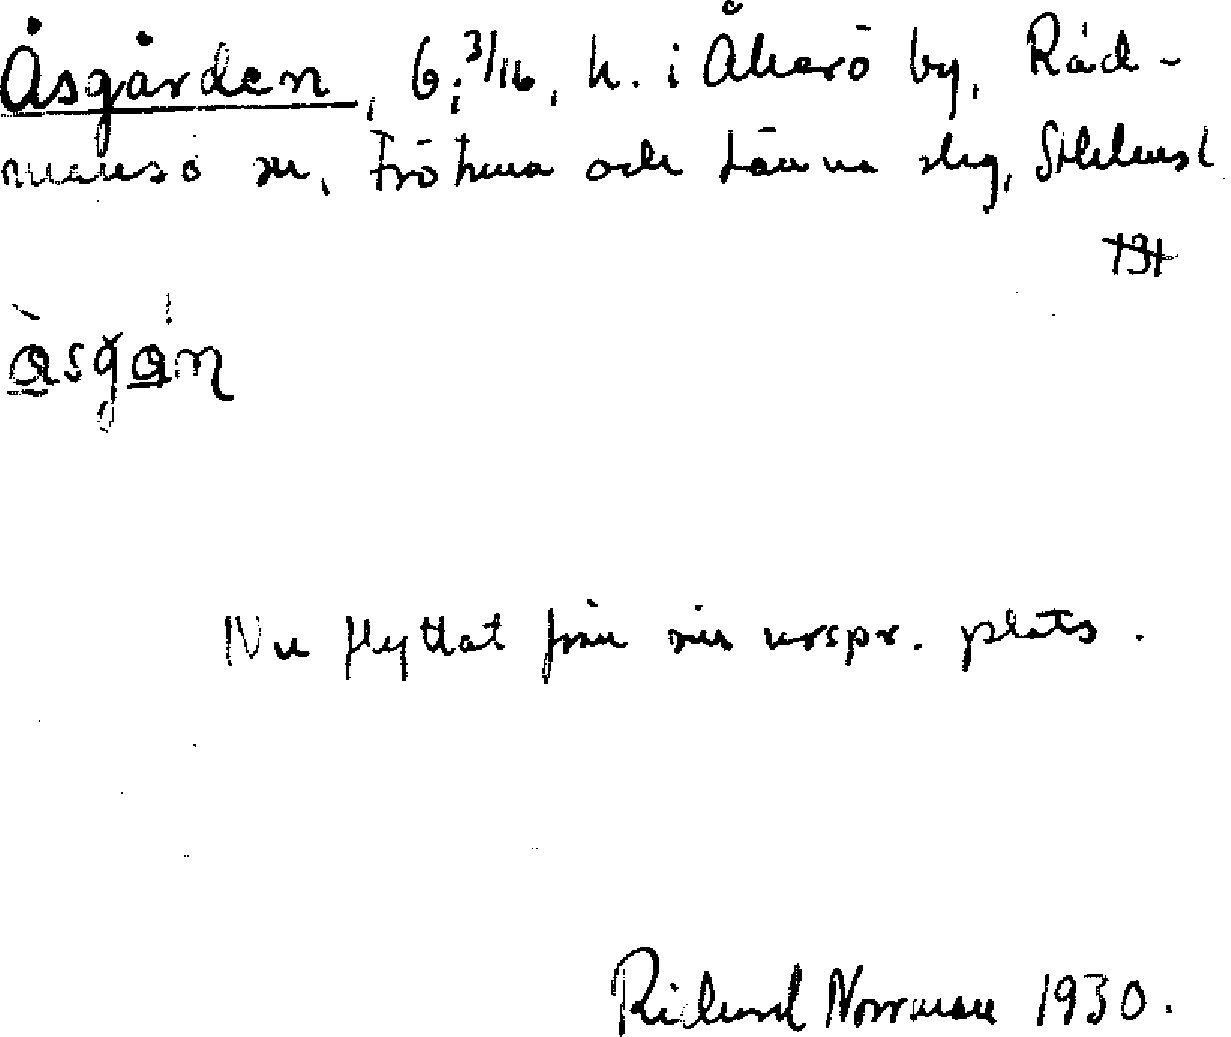 Åsgården, G, 3/16, h. i Åkerö by, Råd-
mansö sn, Frötuna och Länna skg, Sthlms l
åsgån
Nu flyttat från sin urspr. plats.
Rickard Norrman 1930.